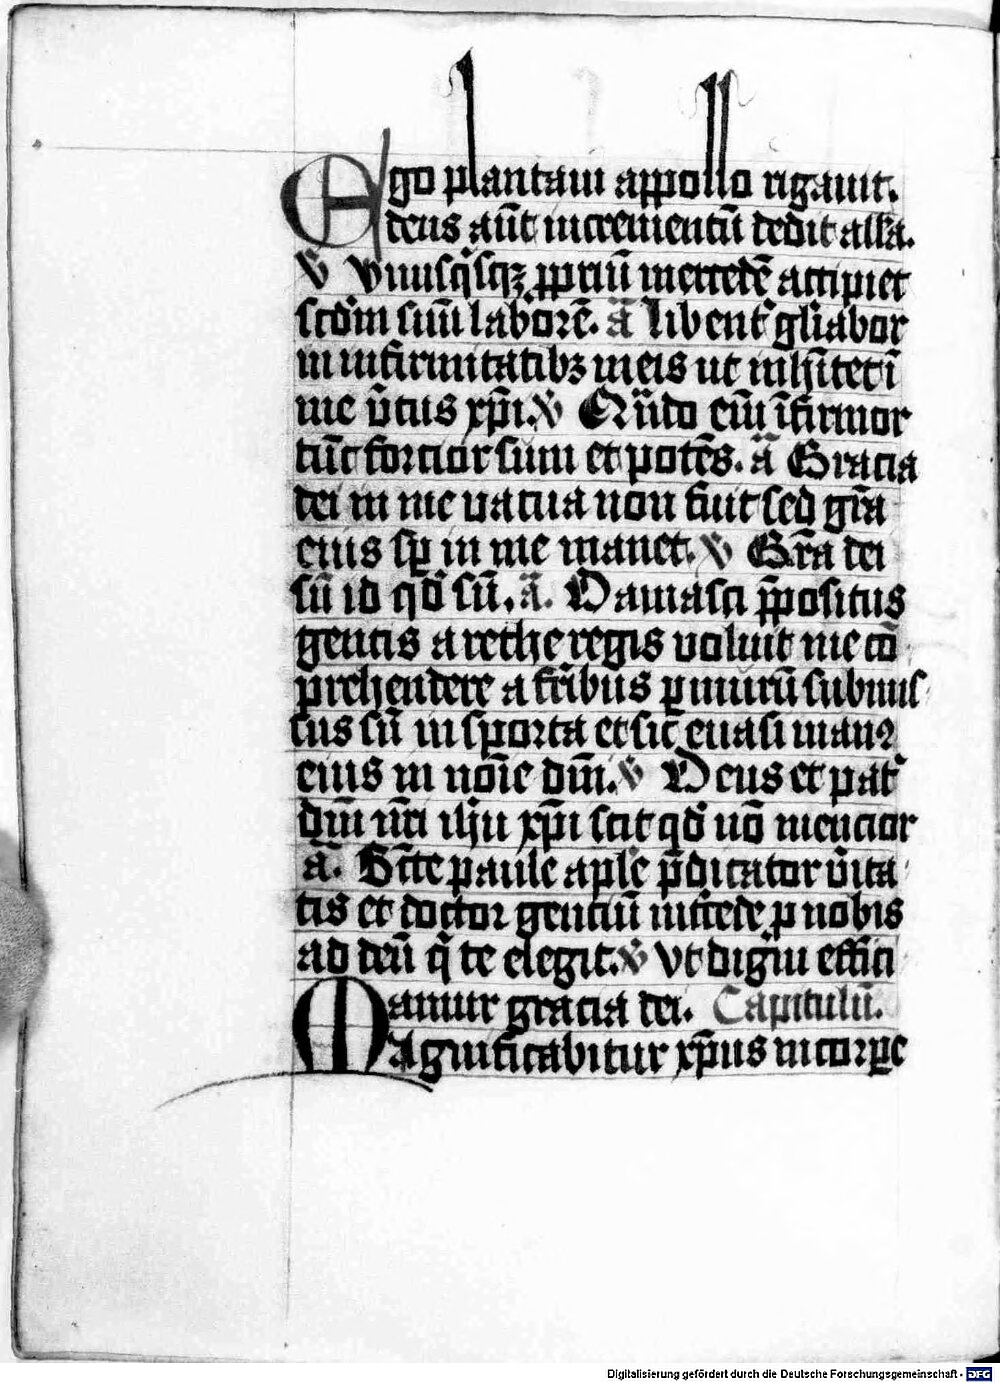 Ego plantaui appollo rigauit.
deus aūt incrementū dedit alla.
V Vnusq̄sqꝫ ꝓpriū mercedē accipiet
scd̄m suū laborē. ā Libent᷑ gl̄iabor
in infirmitatibꝫ meis ut inh̄itet ī
me v̄tus xp̄i. V Qn̄do em̄ īfirmor
tūc forcior sum et potēs. ā Gracia
dei in me uacua non fuit sed gr̄a
eius sp̄ in me manet. V Gr̄a dei
sū id qd̄ sū. ā. Damasci p̄positus
gentis arethe regis uoluit me cō
prehendere a fr̄ibus ꝑ murū submis
sus sū in sporta et sic euasi manꝰ
eius in noīe dn̄i. V Deus et pat᷑
dn̄i nr̄i ih̄u xp̄i scit qd̄ nō mencior
ā. Sc̄te paule aplē p̄dicator v̄ita
tis et doctor genciū int̄cede ꝑ nobis
ad deū q̄ te elegit. V Vt digni effici
amur gracia dei. Capitulū.
Magnificabitur xp̄us in corꝑe
Digitalisierung gefördert durch die Deutsche Forschungsgemeinschaft - DFG